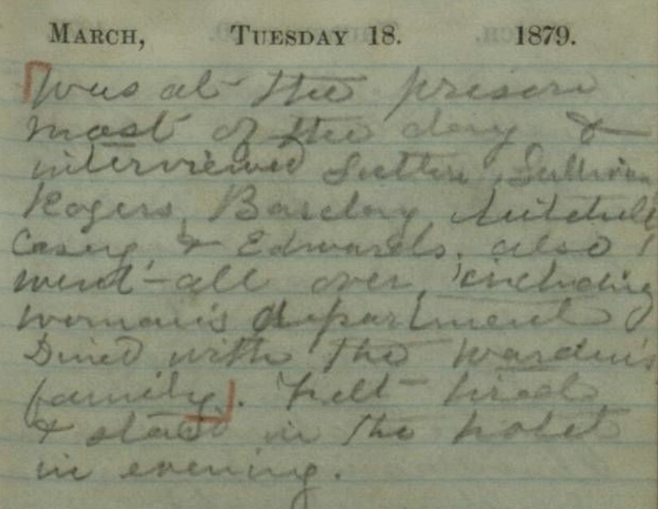 MARCH, TUESDAY 18. 1879.
Was at the prison
most of the day &
interviewed Sutton, Sullivan
Rogers, Barclay, Mitchell
Casey, & Edwards, also I
went all over, including
woman's department
Dined with the warden's
family. Felt tired
& staid in the hotel
in evening.